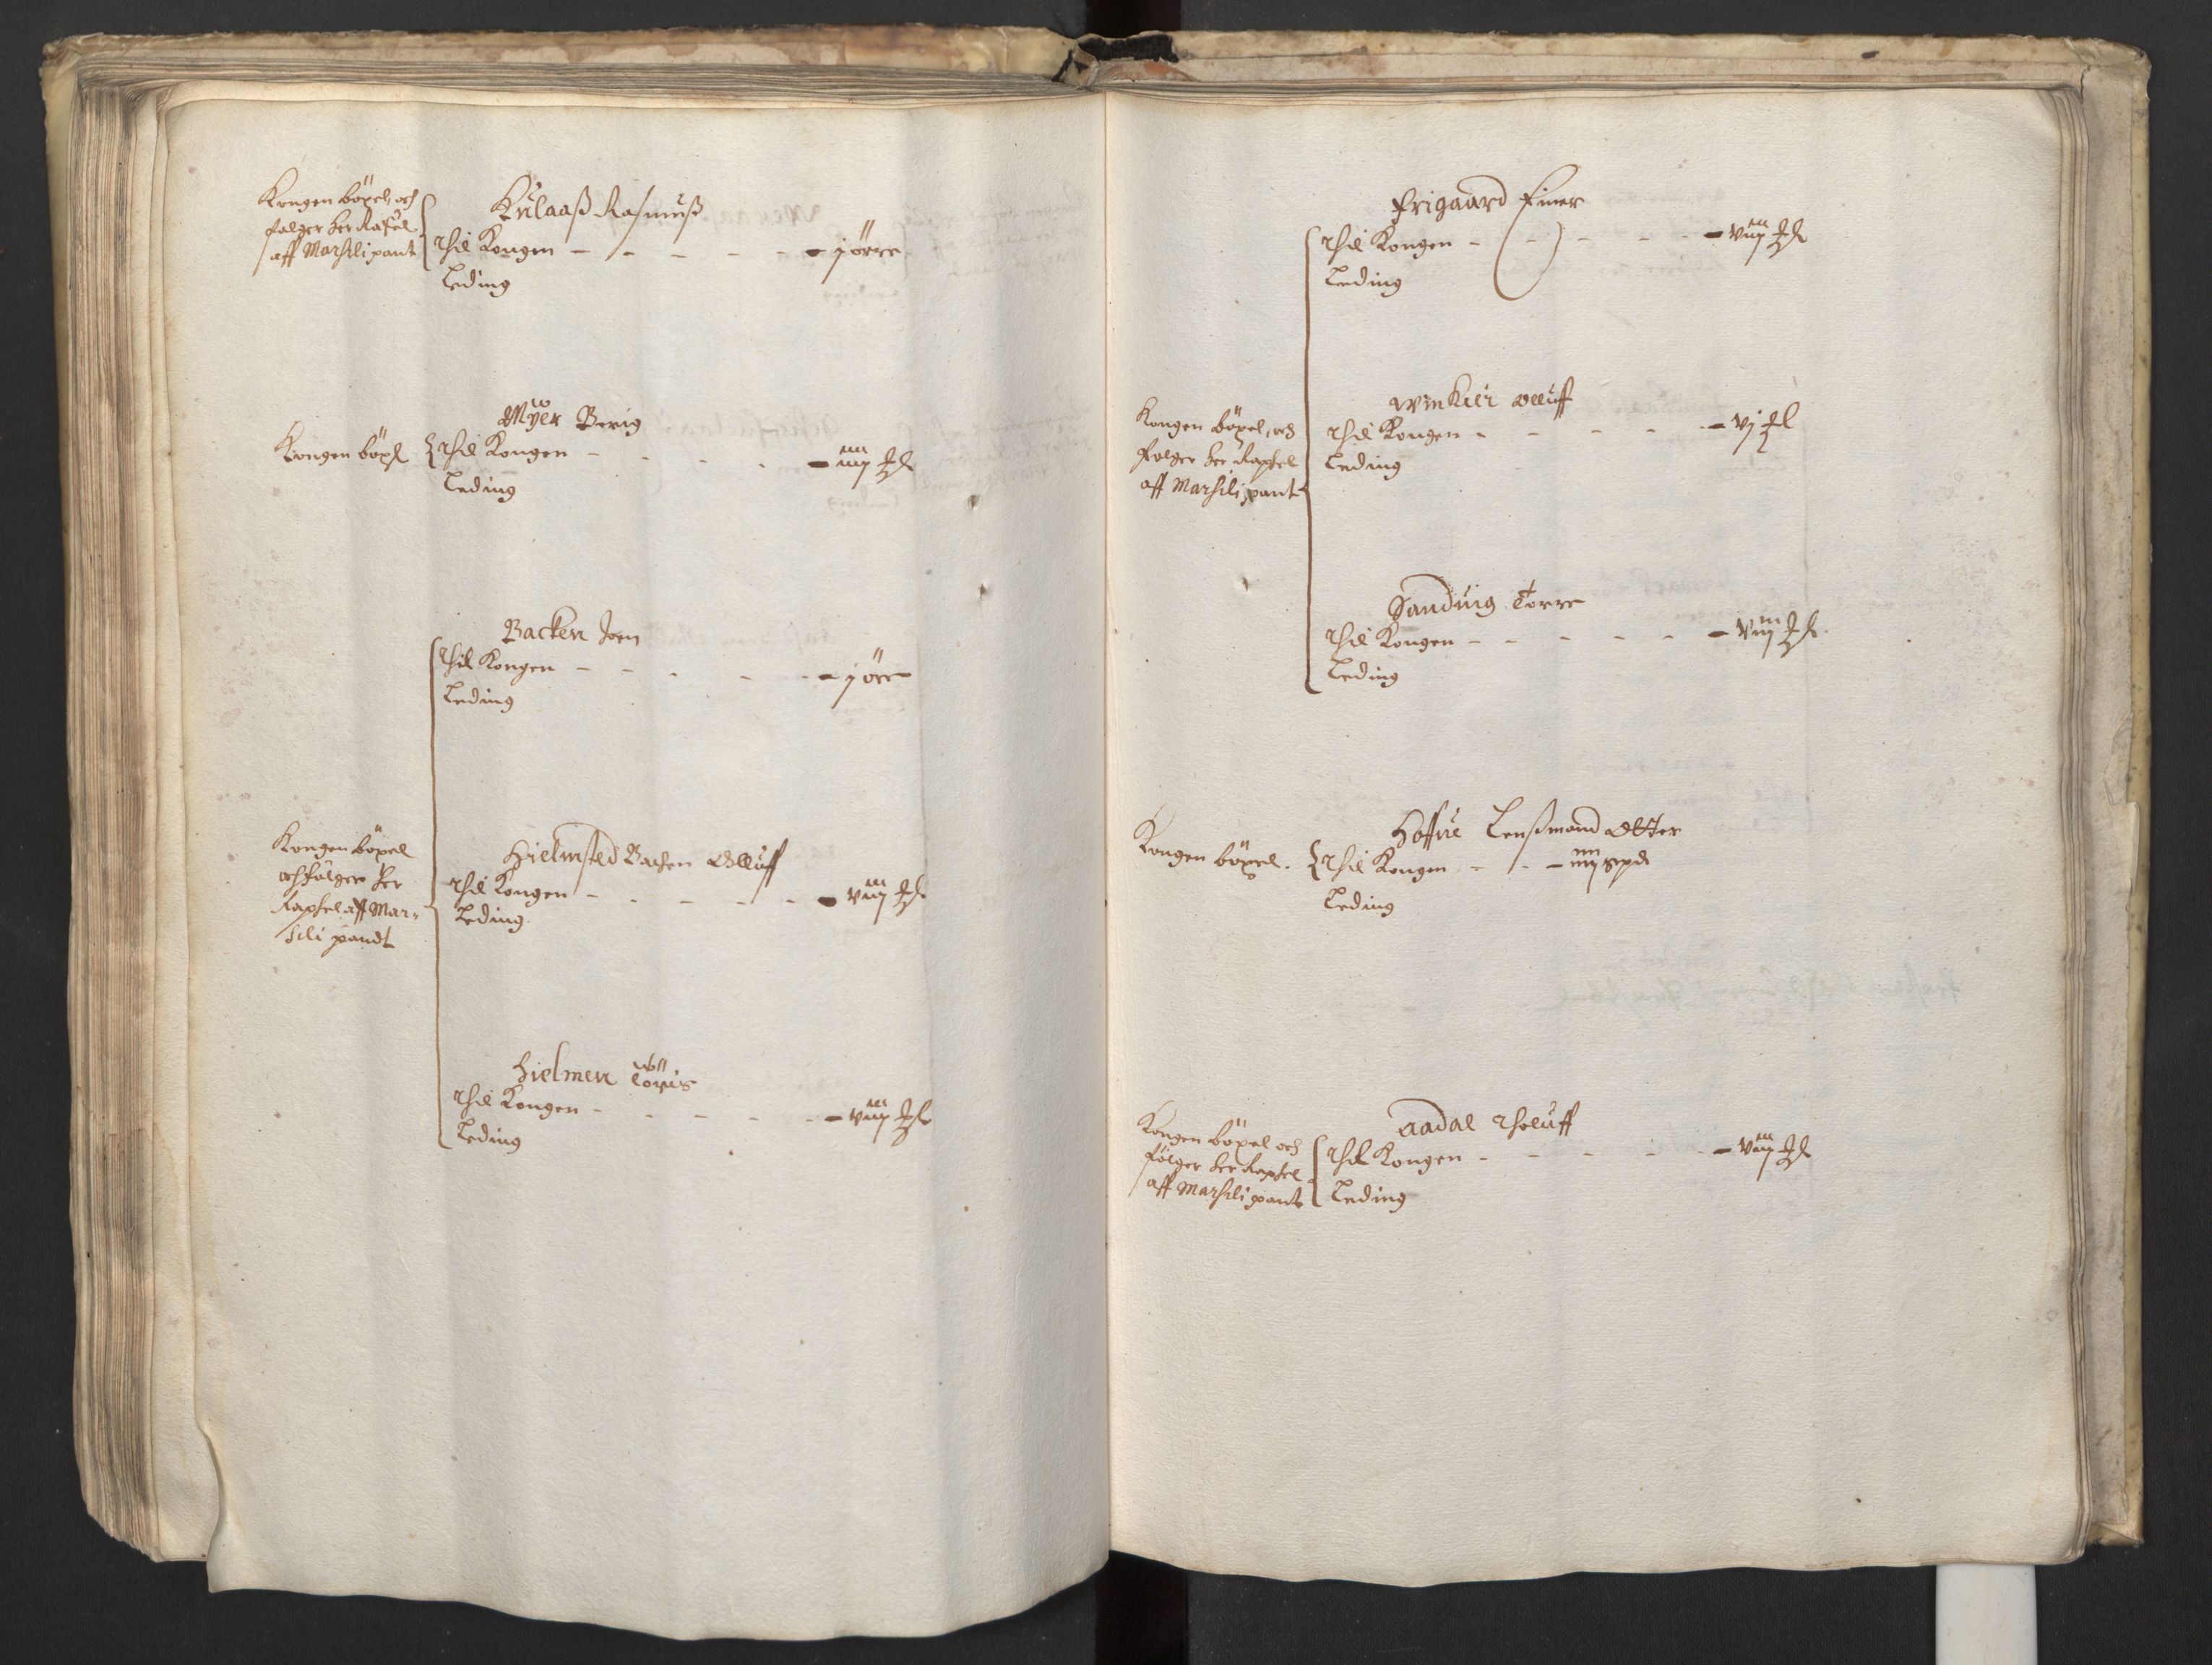 Kongen böxel, och
følger her Rafuel
aff Marsilipant
Kulaaß Rasmuß
Thil Kongen - - - - - - j øre
Leding
Kongen böxl
Myer Berig
Thil Kongen - - - - - iiij
Leding
Backen Joen
Thil Kongen - - - - - - j øre
Leding
Kongen böxel
och følger her
Raphel aff Mar-
sili pandt
Hielmsted Backen Olluff
Thil Kongen - - - - - - viij
Leding
Hielmen
Thil Kongen - - - - - - viij
Leding
Frigaard Einer
Thil Kongen - - - - - - viij
Leding
Kongen böxel, och
følger her Raphel
aff Marsilipant
Winkier Olluff
Thil Kongen - - - - - - vj
Leding
Sanduig Torre
Thil Kongen - - - - - - viij
Leding
Kongen böxel.
Hoffue Lenßmand Otter
Thil Kongen - - - iiij spd
Leding
Kongen böxel och
følger her Raphel
aff Marsilipant
Aadal Tholuff
Thil Kongen - - - - - - viij
Leding